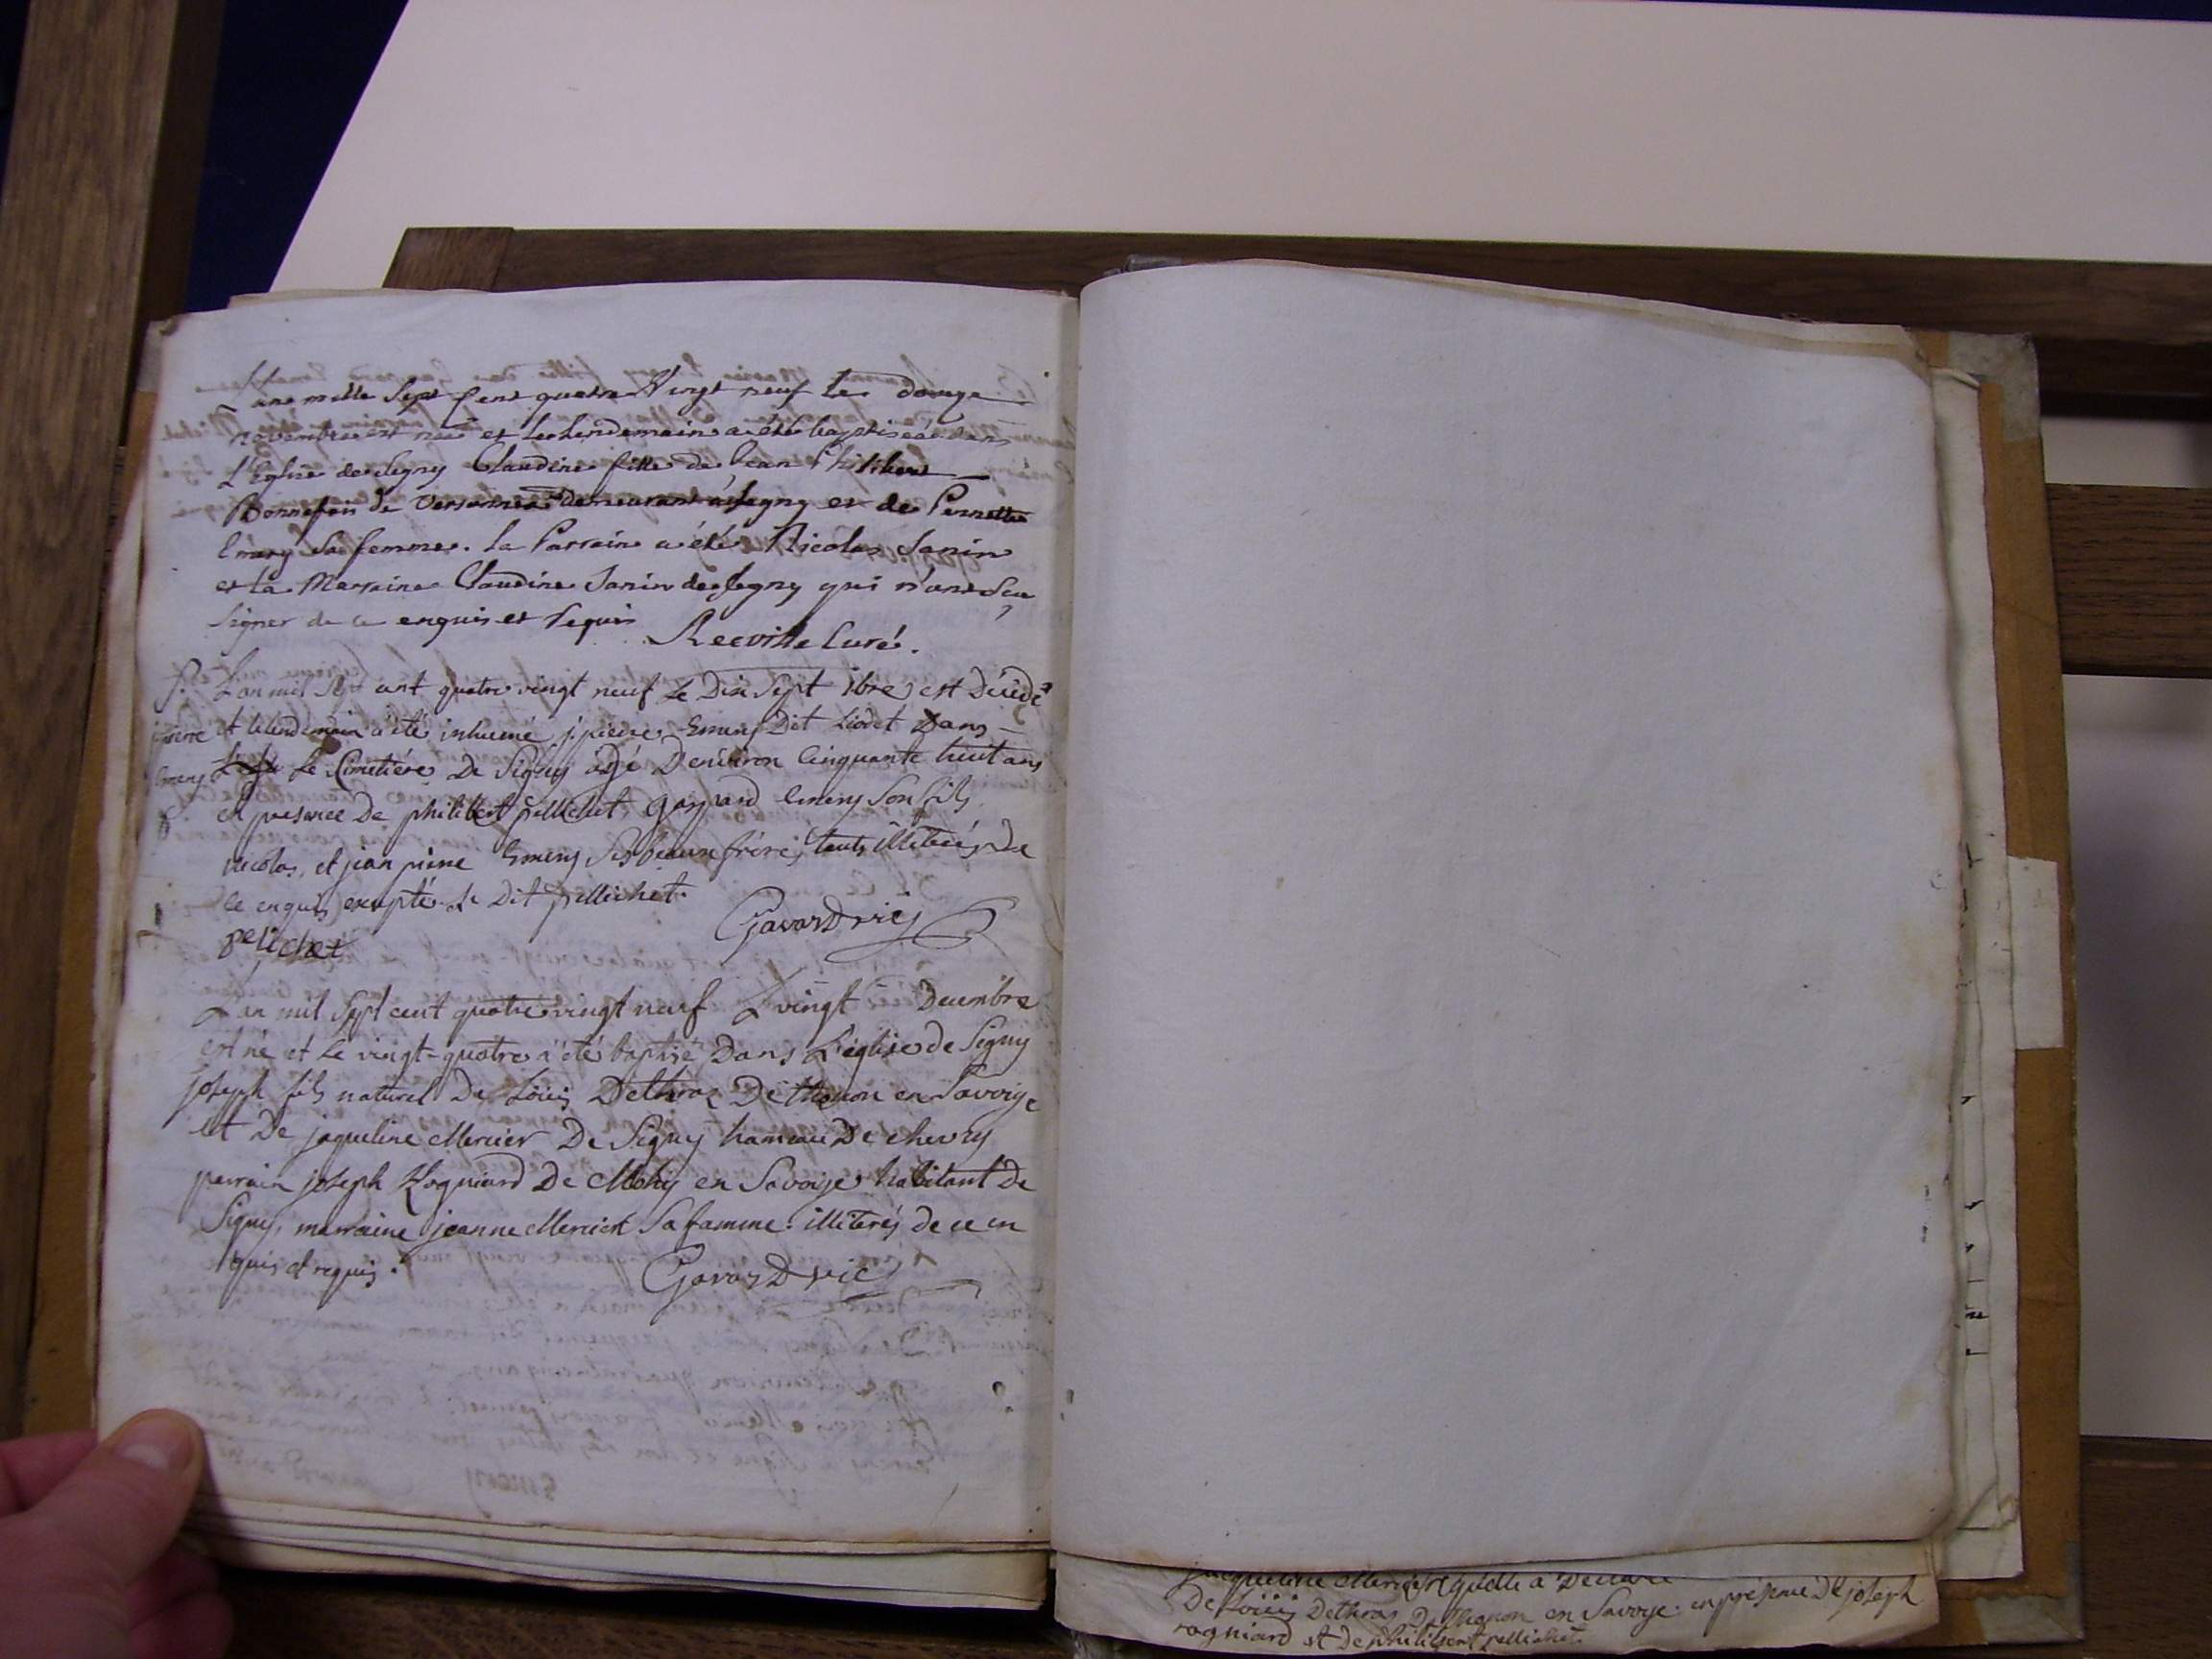 L'an mille Sept Cent quatre Vingt neuf Le douze
novembre est neé et le lendemain a été baptiseé dans
L'Eglise de Segny Claudine fille de Jean Philibert
Bonnefoi de Versonnex demeurant à Segny et de Pernette
Emery Sa femme. Le Parrain a été Nicolas Janin
et la Marraine Claudine Janin de Segny qui n'ont Seu
Signer de ce enquis et Requis
Reeville Curé.
L'an mil Sept cent quatre vingt neuf Le Dix Sept 1bre est Décédé
pierre
et le lendemain a été inhumé j. pierre Emery Dit Liodet Dans
Emery
Le Cimetiére De Signy âgé D'environ Cinquante huit ans
en presence De philibert pellichet, gaspard Emery Son fils
nicolas, et jean pierre Emery Ses beaux fréres touts illiterés De
ce enquis excepté Le Dit pellichet.
Gavard vic
pelichet
L'an mil Sept cent quatre vingt neuf Le vingt Decembre
est né et Le vingt-quatre a été baptisé Dans L'église de Signy
joseph fils naturel De Loüis Dethraz De thonon en Savoye
et De jaqueline Mercier De Signy hameau De chevry
parrain joseph Rogniard De en Savoye habitant De
Signy, marraine jeanne Mercier Sa famme. illiterés de ce en
quis et requis.
Gavard vic
jacqueline Mercier quelle a Declaré
De Loüis Dethraz De Thonon en Savoye. en présence De joseph
rogniard et De philibert pellichet.